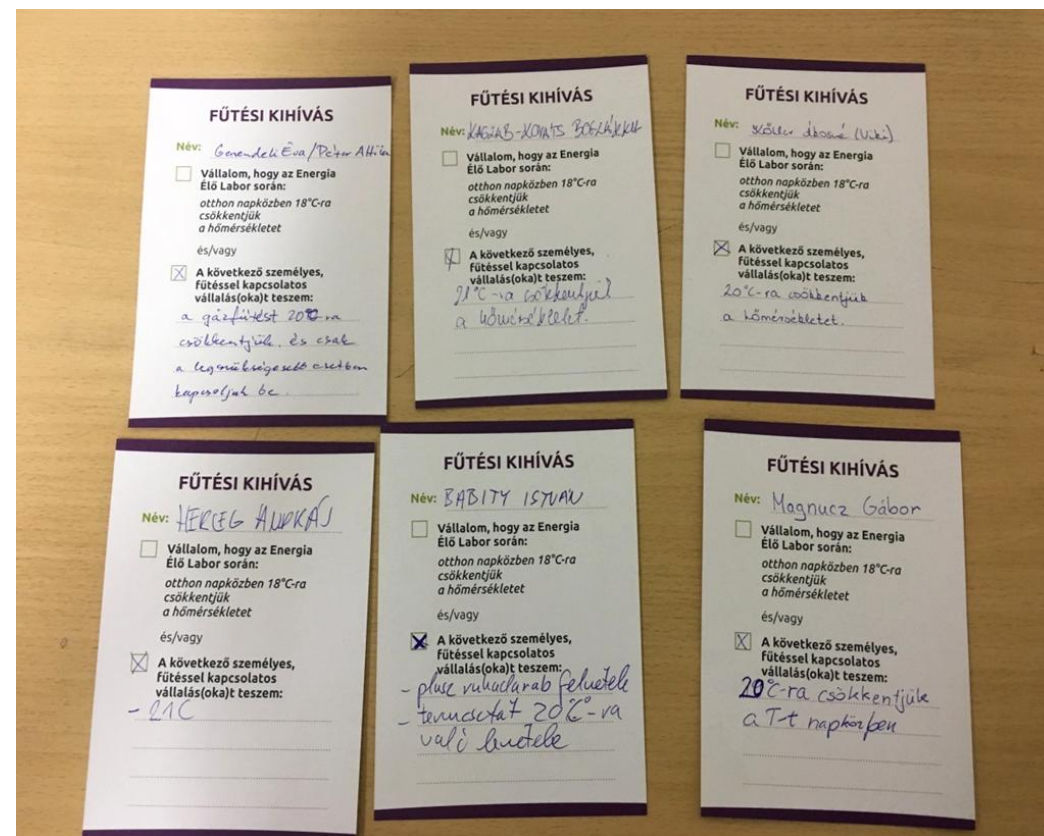 FŰTÉSI KIHÍVÁS
Név: Gerendeli Éva / Péter Attila
Vállalom, hogy az Energia
Élő Labor során:
otthon napközben 18°C-ra
csökkentjük
a hőmérsékletet
és/vagy
A következő személyes,
fűtéssel kapcsolatos
vállalás(oka)t teszem:
a gázfűtést 20°C-ra
csökkentjük, és csak
a legszükségesebb esetben
kapcsoljuk be.
FŰTÉSI KIHÍVÁS
Név:
Vállalom, hogy az Energia
Élő Labor során:
otthon napközben 18°C-ra
csökkentjük
a hőmérsékletet
és/vagy
A következő személyes,
fűtéssel kapcsolatos
vállalás(oka)t teszem:
21°C-ra csökkentjük
a hőmérsékletet.
FŰTÉSI KIHÍVÁS
Név: (Viki)
Vállalom, hogy az Energia
Élő Labor során:
otthon napközben 18°C-ra
csökkentjük
a hőmérsékletet
és/vagy
A következő személyes,
fűtéssel kapcsolatos
vállalás(oka)t teszem:
20°C-ra csökkentjük
a hőmérsékletet.
FŰTÉSI KIHÍVÁS
Név: HERCEG ANDRÁS
Vállalom, hogy az Energia
Élő Labor során:
otthon napközben 18°C-ra
csökkentjük
a hőmérsékletet
és/vagy
A következő személyes,
fűtéssel kapcsolatos
vállalás(oka)t teszem:
- 21C
FŰTÉSI KIHÍVÁS
Név: BABITY ISTVAN
Vállalom, hogy az Energia
Élő Labor során:
otthon napközben 18°C-ra
csökkentjük
a hőmérsékletet
és/vagy
A következő személyes,
fűtéssel kapcsolatos
vállalás(oka)t teszem:
- plusz ruhadarab felvétele
- termosztát 20°C-ra
való levétele
FŰTÉSI KIHÍVÁS
Név: Magnucz Gábor
Vállalom, hogy az Energia
Élő Labor során:
otthon napközben 18°C-ra
csökkentjük
a hőmérsékletet
és/vagy
A következő személyes,
fűtéssel kapcsolatos
vállalás(oka)t teszem:
20°C-ra csökkentjük
a T-t napközben